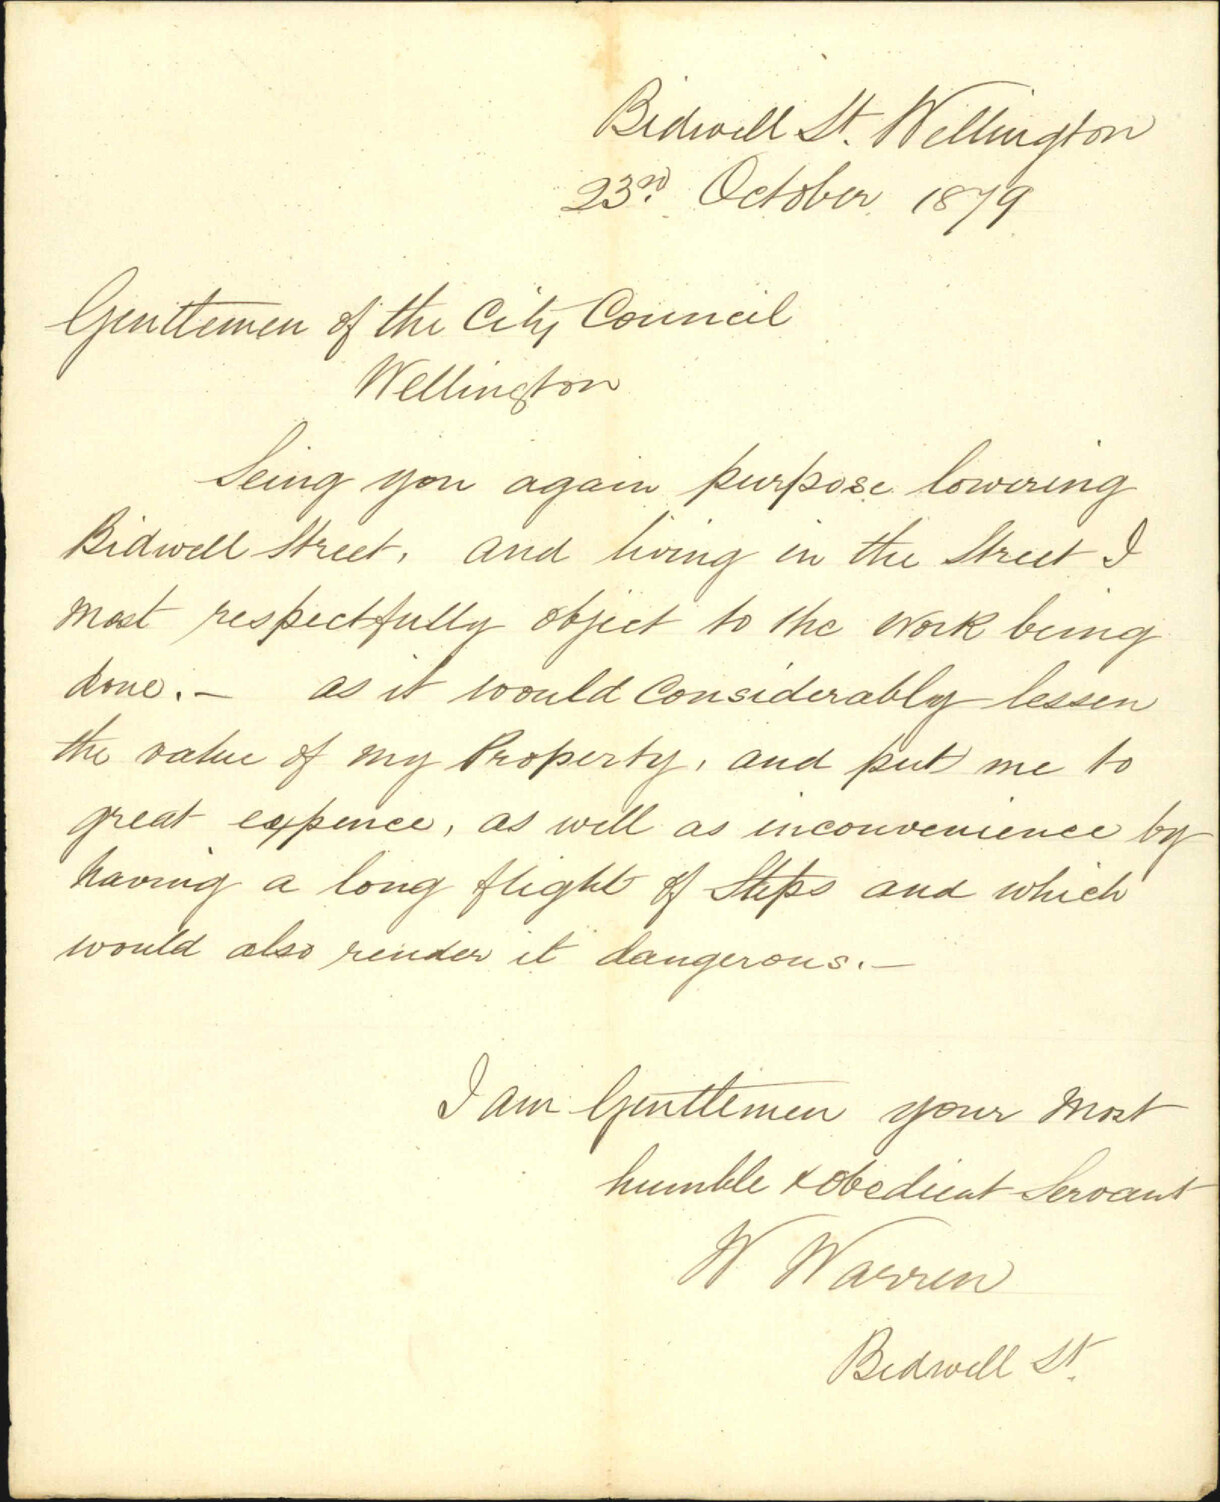 Bidwell St. Wellington
23rd. October 1879
Gentlemen of the City Council
Wellington
Seing you again purpose lowering
Bidwell Street, and living in the Street I
most respectfully object to the work being
done. — as it would Considerably lessen
the value of my Property, and put me to
great expence, as well as inconvenience by
having a long flight of Steps and which
would also render it dangerous. —
I am Gentlemen your most
humble & obedient Servant
W Warren
Bidwell St.